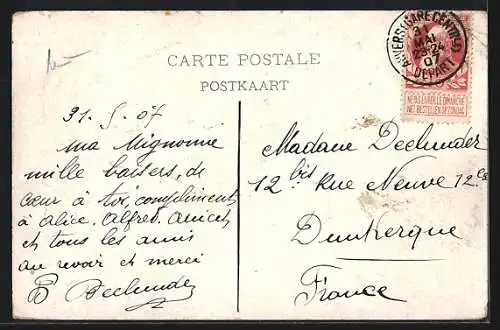 CARTE POSTALE
POSTKAART
ANVERS (GARE CENTR.)
31
MAI
23-24
07
DEPART
NE PAS LIVRER LE DIMANCHE
NIET BESTELLEN OP ZONDAG
31. 5. 07
ma Mignonne
mille baisers, de
cœur à toi, compliments
à Alice. Alfred.
et tous les amis
au revoir et merci
Madame
12 bis Rue Neuve 12
Dunkerque
France